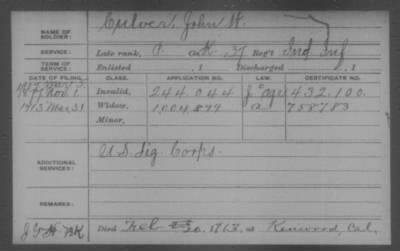 NAME OF SOLDIER: Culver, John W.
SERVICE: Late rank, P Co. K, 37 Reg't Ind Inf
TERM OF SERVICE: Enlisted , 1 Discharged , 1
DATE OF FILING. CLASS. APPLICATION NO. LAW. CERTIFICATE NO.
Nov. 1 Invalid, 244.044 432.100.
1913 Mar 31 Widow, 1,004,899 758783
Minor,
ADDITIONAL SERVICES: U.S. Sig. Corps.
REMARKS:
Died Feb 20, at Kenwood, Cal.